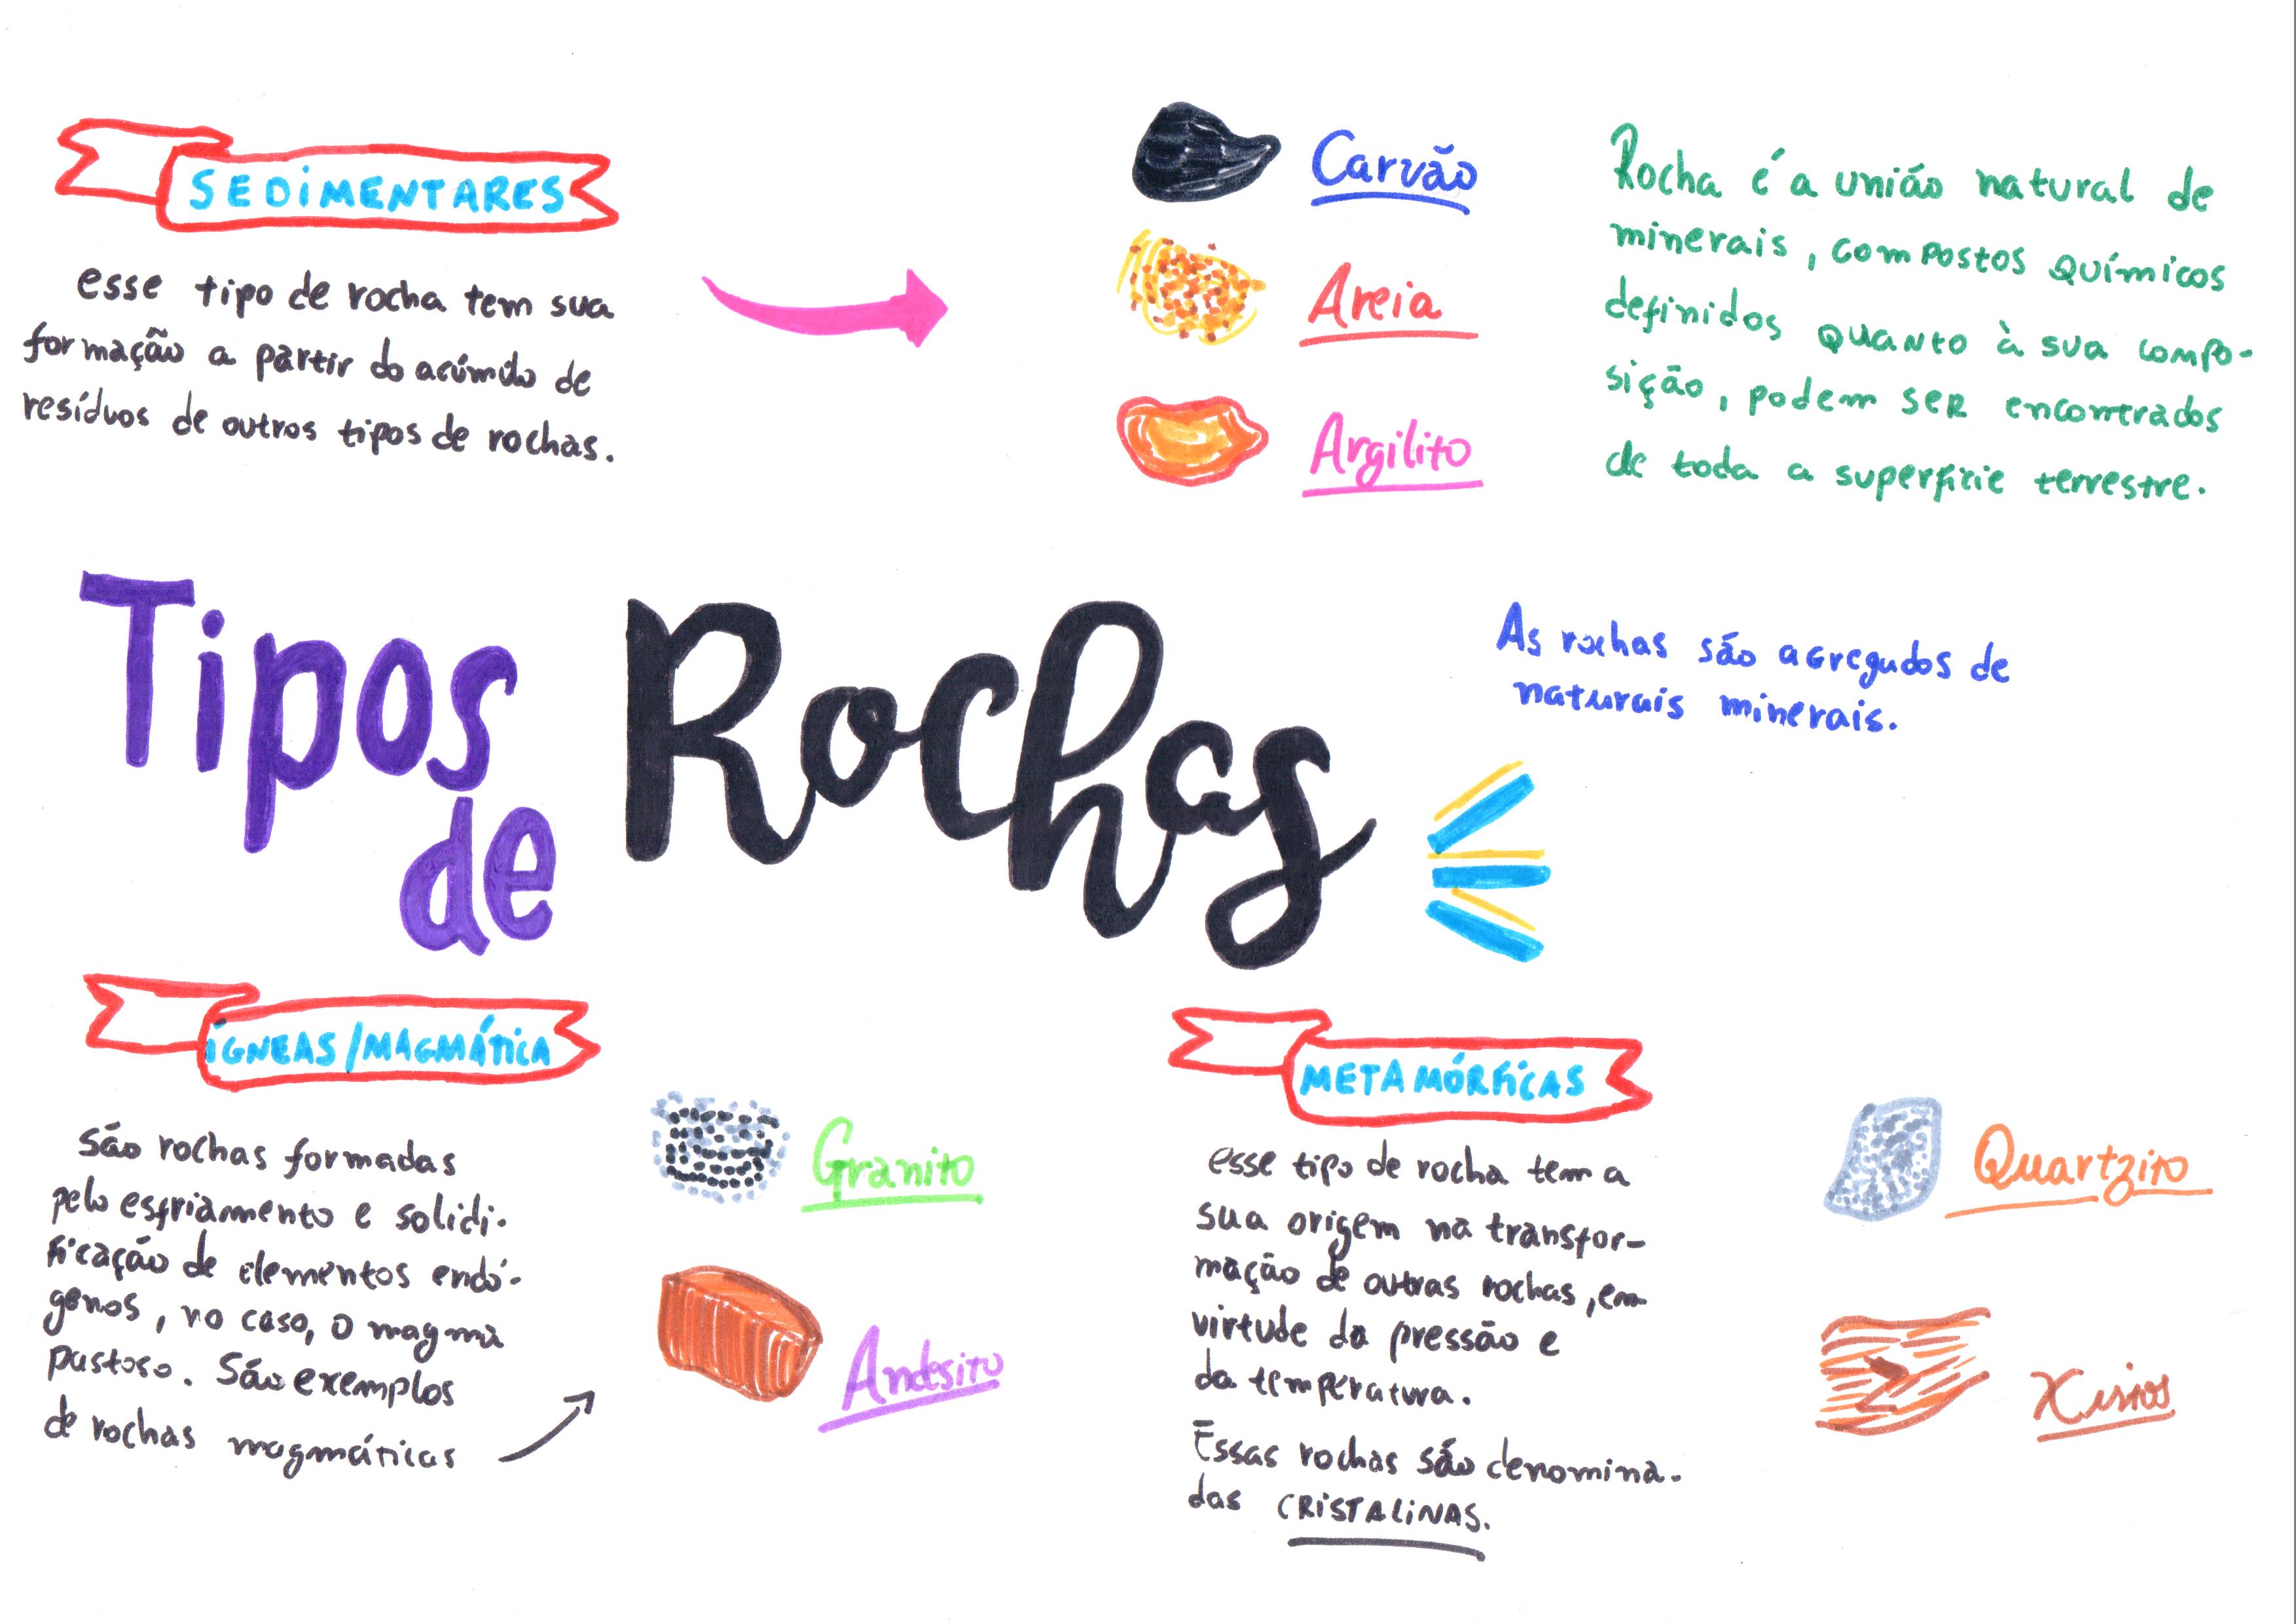 SEDIMENTARES
esse tipo de rocha tem sua
formação a partir do acúmulo de
resíduos de outros tipos de rochas.
Carvão
Areia
Argilito
Rocha é a união natural de
minerais, compostos químicos
definidos quanto à sua compo-
sição, podem ser encontrados
de toda a superfície terrestre.
Tipos
de
Rochas
As rochas são agregados de
naturais minerais.
ÍGNEAS/MAGMÁTICA
São rochas formadas
pelo esfriamento e solidi-
ficação de elementos endó-
genos, no caso, o magma
pastoso. São exemplos
de rochas magmáticas
Granito
Andesito
METAMÓRFICAS
esse tipo de rocha tem a
sua origem na transfor-
mação de outras rochas, em
virtude da pressão e
da temperatura.
Essas rochas são denomina-
das CRISTALINAS.
Quartzito
Xistos